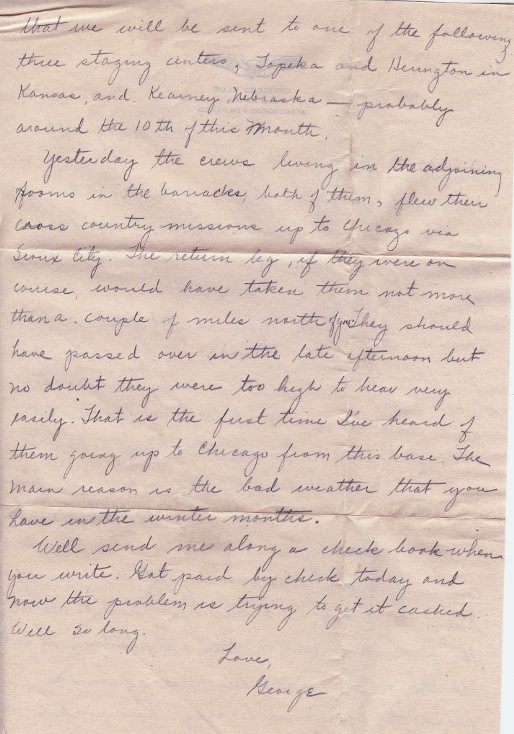 that we will be sent to one of the following
three staging centers, Topeka and Herington in
Kansas, and Kearney, Nebraska — probably
around the 10th of this Month.
Yesterday the crews living in the adjoining
rooms in the barracks, both of them, flew their
cross country missions up to Chicago via
Sioux City. The return leg, if they were on
course, would have taken them not more
than a couple of miles north of you. They should
have passed over in the late afternoon but
no doubt they were too high to hear very
easily. That is the first time I've heard of
them going up to Chicago from this base. The
main reason is the bad weather that you
have in the winter months.
Well send me along a check book when
you write. Got paid by check today and
now the problem is trying to get it cashed.
Well so long.
Love,
George